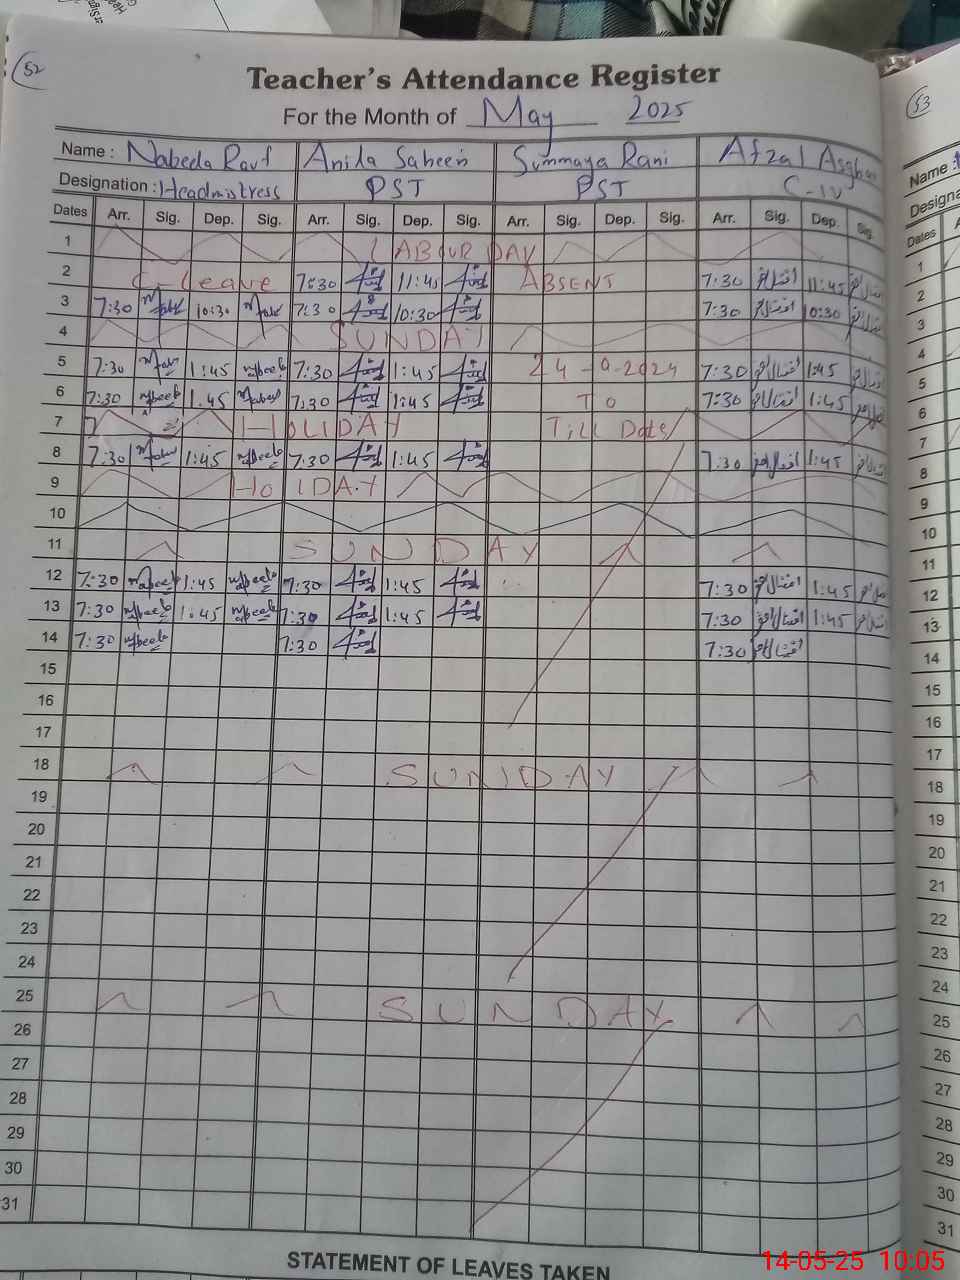 52
Teacher's Attendance Register
For the Month of May 2025
Name : Nabeela Rauf Anila Saheen Summaya Rani Afzal Asghar
Designation : Headmistress PST PST C-IV
Dates Arr. Sig. Dep. Sig. Arr. Sig. Dep. Sig. Arr. Sig. Dep. Sig. Arr. Sig. Dep. Sig.
1 LABOUR DAY
2 C- Leave 7:30 11:45 ABSENT 7:30 11:45
3 7:30 10:30 7:30 10:30 7:30 10:30
4 SUNDAY
5 7:30 1:45 7:30 1:45 24-9-2024 7:30 1:45
6 7:30 1:45 7:30 1:45 To 7:30 1:45
7 HOLIDAY Till Date
8 7:30 1:45 7:30 1:45 7:30 1:45
9 HOLIDAY
10
11 SUNDAY
12 7:30 1:45 7:30 1:45 7:30 1:45
13 7:30 1:45 7:30 1:45 7:30 1:45
14 7:30 7:30 7:30
15
16
17
18 SUNDAY
19
20
21
22
23
24
25 SUNDAY
26
27
28
29
30
31
STATEMENT OF LEAVES TAKEN
53
Name :
Dates
1
2
3
4
5
6
7
8
9
10
11
12
13
14
15
16
17
18
19
20
21
22
23
24
25
26
27
28
29
30
31
14-05-25 10:05